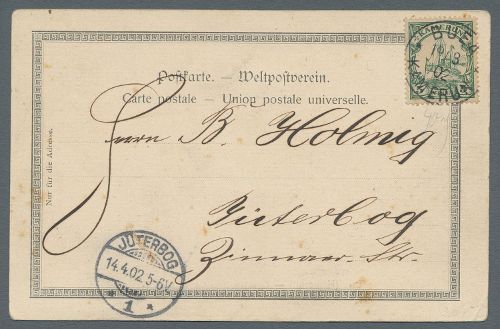 KAMERUN
BUEA
19 3
02
KAMERUN
Postkarte. — Weltpostverein.
Carte postale — Union postale universelle.
Nur für die Adresse.
Herrn B. Holmig
Jüterbog
Zinnaer-Str.
JÜTERBOG
14.4.02. 5-6V
* 1 *